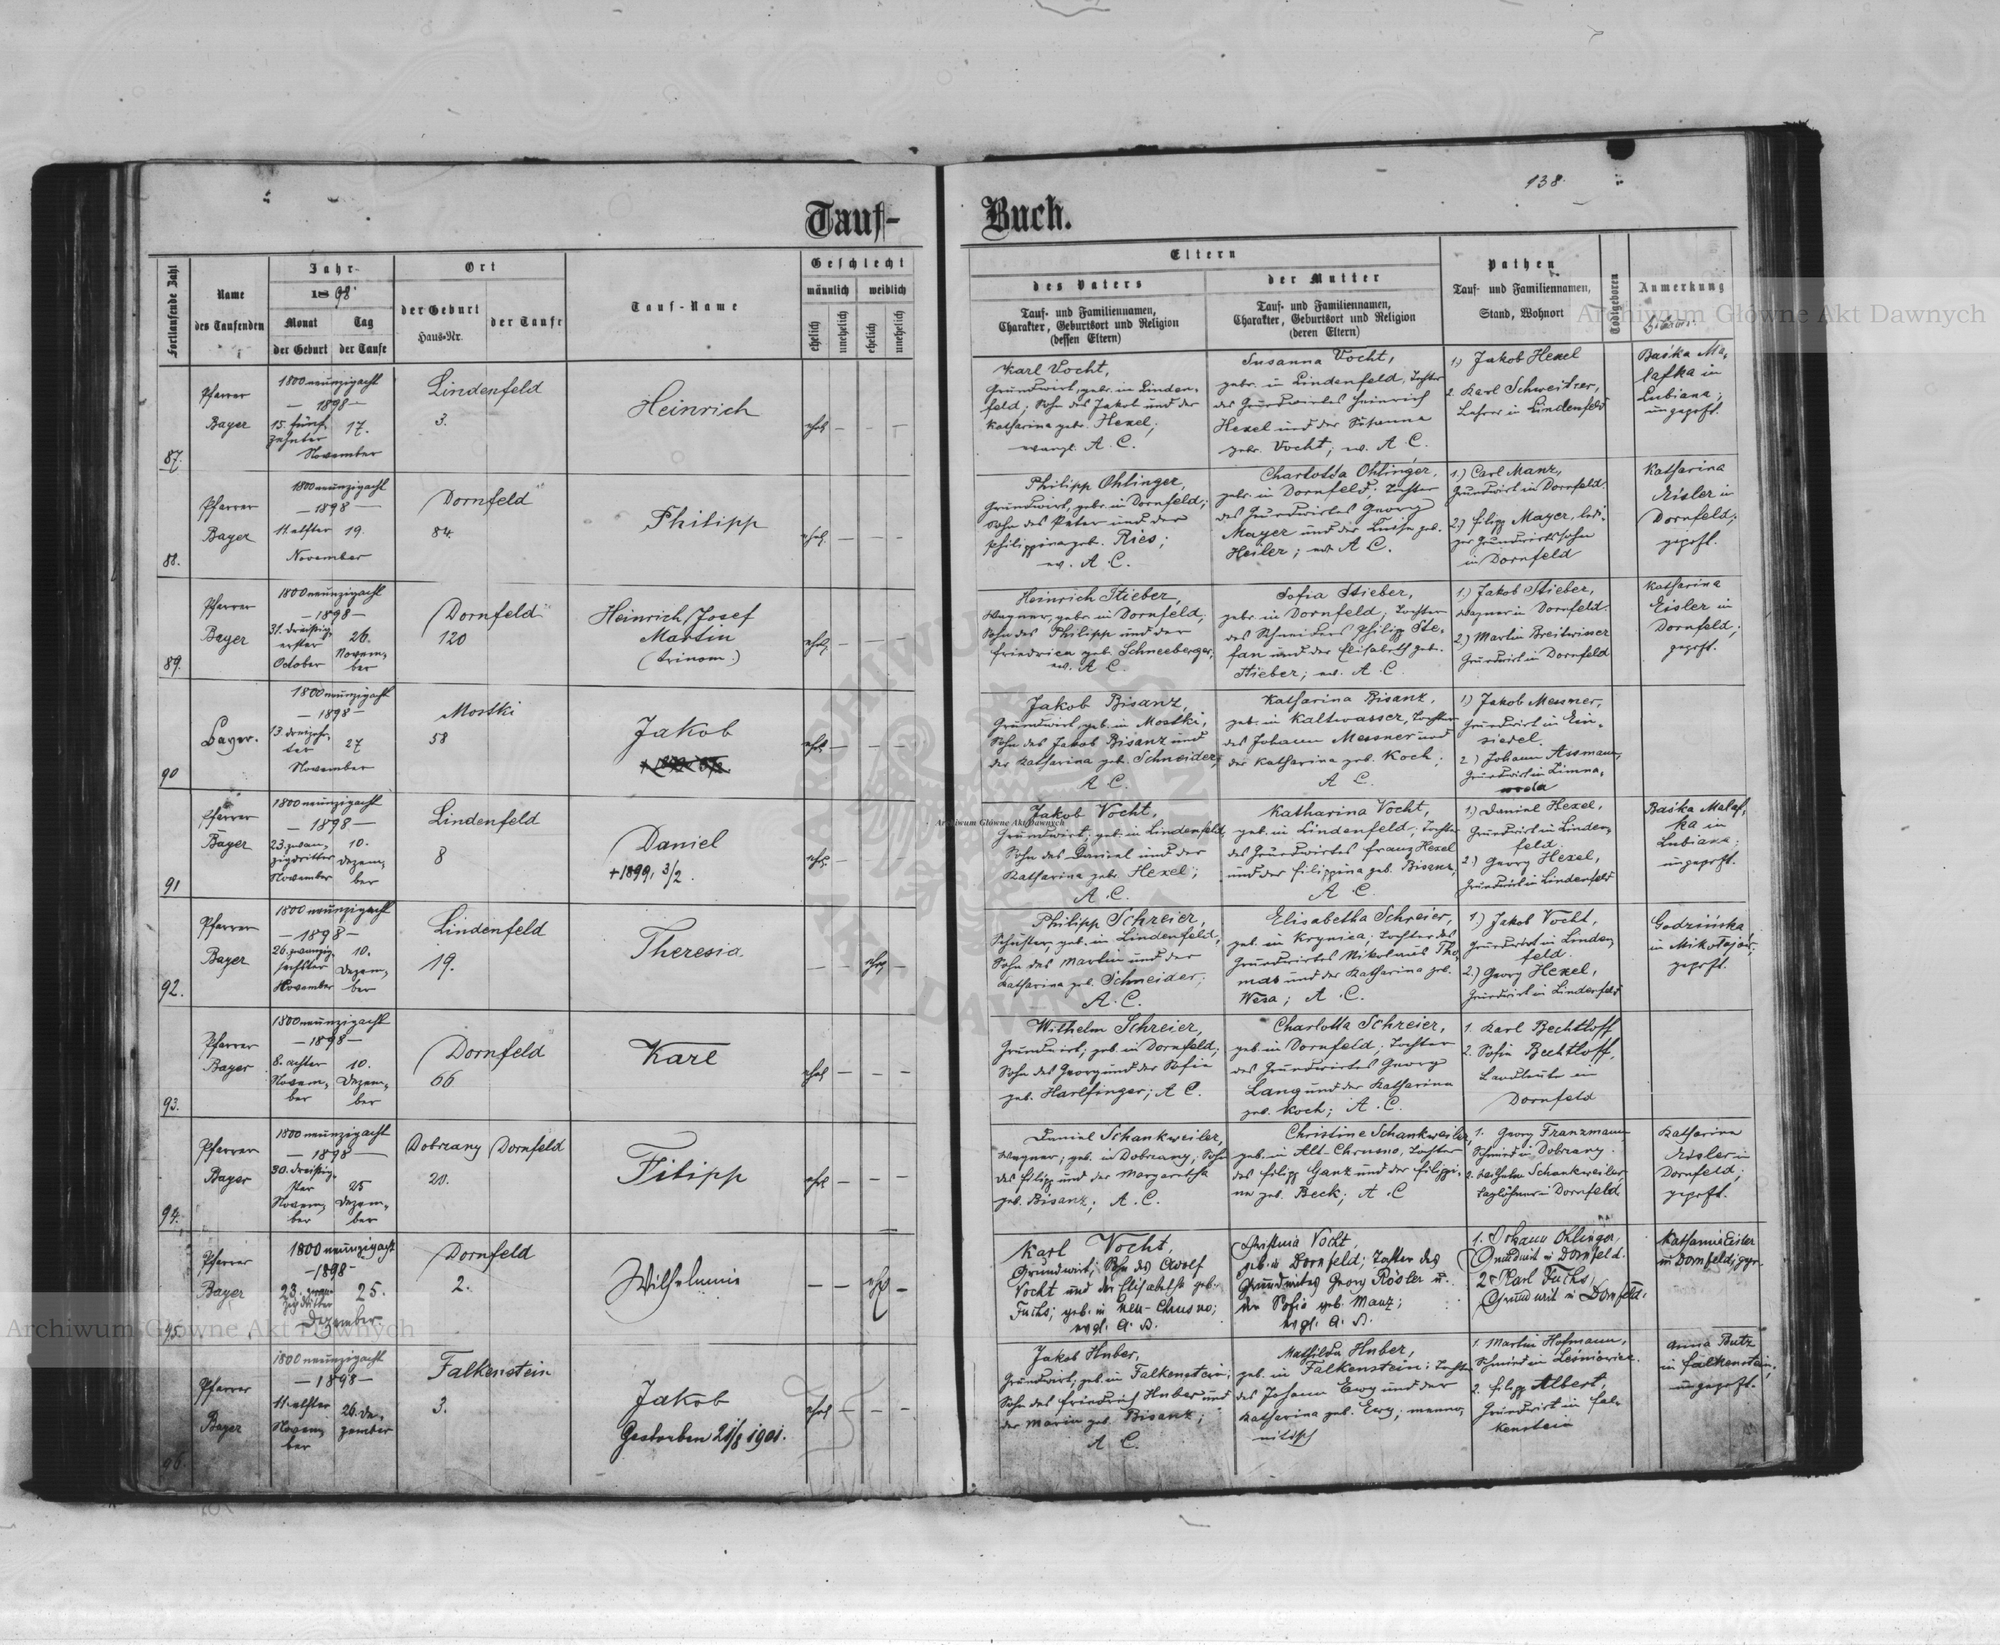 138.
Tauf-
Buch.
Fortlaufende Zahl
Name
des Taufenden
Jahr-
1898
Monat
Tag
der Geburt
der Taufe
Ort
der Geburt
Haus-Nr.
der Taufe
Tauf-Name
Geschlecht
männlich
weiblich
ehelich
unehelich
ehelich
unehelich
Eltern
des Vaters
Tauf- und Familiennamen,
Charakter, Geburtsort und Religion
(dessen Eltern)
der Mutter
Tauf- und Familiennamen,
Charakter, Geburtsort und Religion
(deren Eltern)
Pathen
Tauf- und Familiennamen,
Stand, Wohnort
Todtgeboren
Anmerkung
87.
Pfarrer
Bayer
1800 neunzigacht
— 1898 —
15. fünf-
zehnter
17.
November
Lindenfeld
3.
Heinrich
ehel
Karl Vocht,
Grundwirt, gebr. in Linden-
feld; Sohn des Jakob und der
Katharina gebr. Hexel;
evangl. A. C.
Susanna Vocht,
gebr. in Lindenfeld, Tochter
des Grundwirtes Heinrich
Hexel und der Susanna
gebr. Vocht; ev. A. C.
1.) Jakob Hexel
2. Karl Schweitzer,
Lehrer in Lindenfeld
Baśka Ma-
lafka in
Lubiana;
ungeprft.
88.
Pfarrer
Bayer
1800 neunzigacht
— 1898 —
11. elfter 19.
November
Dornfeld
84.
Philipp
ehel.
Philipp Ohlinger,
Grundwirt, gebr. in Dornfeld;
Sohn des Peter und der
Philippina geb. Ries;
ev. A. C.
Charlotta Ohlinger,
gebr. in Dornfeld; Tochter
des Grundwirtes Georg
Mayer und der Luise geb.
Heiler; ev. A. C.
1.) Carl Manz,
Grundwirt in Dornfeld.
2.) Filipp Mayer, ledi-
ger Grundwirtssohn
in Dornfeld
Katharina
Eisler in
Dornfeld;
geprft.
89.
Pfarrer
Bayer
1800 neunzigacht
— 1898 —
31. dreißig-
erster
October
26.
Novem-
ber
Dornfeld
120
Heinrich Josef
Martin
(trinom.)
ehel.
Heinrich Stieber,
Wagner, gebr. in Dornfeld,
Sohn des Philipp und der
Friedrica geb. Schneeberger,
ev. A. C.
Sofia Stieber,
gebr. in Dornfeld, Tochter
des Schneiders Philipp Ste-
fan und der Elisabeth geb.
Stieber; ev. A. C.
1.) Jakob Stieber,
Wagner in Dornfeld.
2.) Martin Breitwieser
Grundwirt in Dornfeld
Katharina
Eisler in
Dornfeld;
geprft.
90
Bayer.
1800 neunzigacht
— 1898 —
13. dreizehn-
ter
27
November
Mostki
58
Jakob
ehel
Jakob Bisanz,
Grundwirt, geb. in Mostki,
Sohn des Jakob Bisanz und
der Katharina geb. Schneider;
A. C.
Katharina Bisanz,
geb. in Kaltwasser, Tochter
des Johann Messner und
der Katharina geb. Koch;
A. C.
1.) Jakob Messner,
Grundwirt in Ein-
siedel.
2.) Johann Assmann,
Grundwirt in Zimna-
woda
91
Pfarrer
Bayer
1800 neunzigacht
— 1898 —
23. zwan-
zigdritter
November
10.
Dezem-
ber
Lindenfeld
8
Daniel
+ 1899, 3/2.
ehel.
Jakob Vocht,
Grundwirt; geb. in Lindenfeld,
Sohn des Daniel und der
Katharina gebr. Hexel;
A. C.
Katharina Vocht,
geb. in Lindenfeld; Tochter
des Grundwirtes Franz Hexel
und der Filippina geb. Bisanz,
A. C.
1.) Daniel Hexel,
Grundwirt in Linden-
feld.
2.) Georg Hexel,
Grundwirt in Lindenfeld
Baśka Malaf-
ka in
Lubiana;
ungeprft.
92.
Pfarrer
Bayer
1800 neunzigacht
— 1898 —
26. zwanzig-
sechster
November
10.
Dezem-
ber
Lindenfeld
19.
Theresia.
ehel
Philipp Schreier,
Schuster, geb. in Lindenfeld,
Sohn des Martin und der
Katharina geb. Schneider;
A. C.
Elisabetha Schreier,
geb. in Krynica; Tochter des
Grundwirtes Nikolaus Tho-
mas und der Katharina geb.
Wesa; A. C.
1.) Jakob Vocht,
Grundwirt in Linden-
feld.
2.) Georg Hexel,
Grundwirt in Lindenfeld
Godzińska
in Mikołajów;
geprft.
93.
Pfarrer
Bayer
1800 neunzigacht
— 1898 —
8. achter
Novem-
ber
10.
Dezem-
ber
Dornfeld
66
Karl
ehel
Wilhelm Schreier,
Grundwirt; geb. in Dornfeld;
Sohn des Georg und der Sofie
geb. Harlfinger; A. C.
Charlotta Schreier,
geb. in Dornfeld; Tochter
des Grundwirtes Georg
Lang und der Katharina
geb. Koch; A. C.
1. Karl Bechtloff
2. Sofia Bechtloff,
Landleute in
Dornfeld
94.
Pfarrer
Bayer
1800 neunzigacht
— 1898 —
30. dreißig-
ster
Novem-
ber
25
Dezem-
ber
Dobrzany Dornfeld
20.
Filipp
ehel
Daniel Schankweiler,
Wagner; geb. in Dobrzany; Sohn
des Filipp und der Margaretha
geb. Bisanz; A. C.
Christine Schankweiler,
geb. in Alt-Chrusno, Tochter
des Filipp Ganz und der Filippi-
na geb. Beck; A. C
1. Georg Franzmann
Schmied in Dobrzany.
2. Wilhelm Schankweiler,
Taglöhner in Dornfeld
Katharina
Eisler in
Dornfeld;
geprft.
95.
Pfarrer
Bayer
1800 neunzigacht
— 1898 —
23. zwan-
zigdritter
25.
Dezember
Dornfeld
2.
Wilhelmine
ehel
Karl Vocht,
Grundwirt; Sohn des Adolf
Vocht und der Elisabeth geb.
Fuchs; geb. in Neu-Chrusno;
evgl. A. B.
Christina Vocht,
geb. in Dornfeld; Tochter des
Grundwirtes Georg Rösler u.
der Sofie geb. Manz;
evgl. A. B.
1. Johann Ohlinger,
Grundwirt in Dornfeld.
2. Karl Fuchs,
Grundwirt in Dornfeld.
Katharina Eisler
in Dornfeld; gepr.
96.
Pfarrer
Bayer
1800 neunzigacht
— 1898 —
11. elfter
Novem-
ber
26. De-
zember
Falkenstein
3.
Jakob
Gestorben 21/8 1901.
ehel
Jakob Huber,
Grundwirt, geb. in Falkenstein;
Sohn des Friedrich Huber und
der Maria geb. Bisanz;
A. C.
Mathilda Huber,
geb. in Falkenstein; Tochter
des Johann Ewy und der
Katharina geb. Ewy; menno-
nitisch
1. Martin Hofmann,
Schmied in Leśniowice.
2. Filipp Albert,
Grundwirt in Fal-
kenstein
Anna Butz
in Falkenstein;
ungeprft.
Archiwum Główne Akt Dawnych
Archiwum Główne Akt Dawnych
Archiwum Główne Akt Dawnych
ARCHIWUM GŁÓWNE AKT DAWNYCH